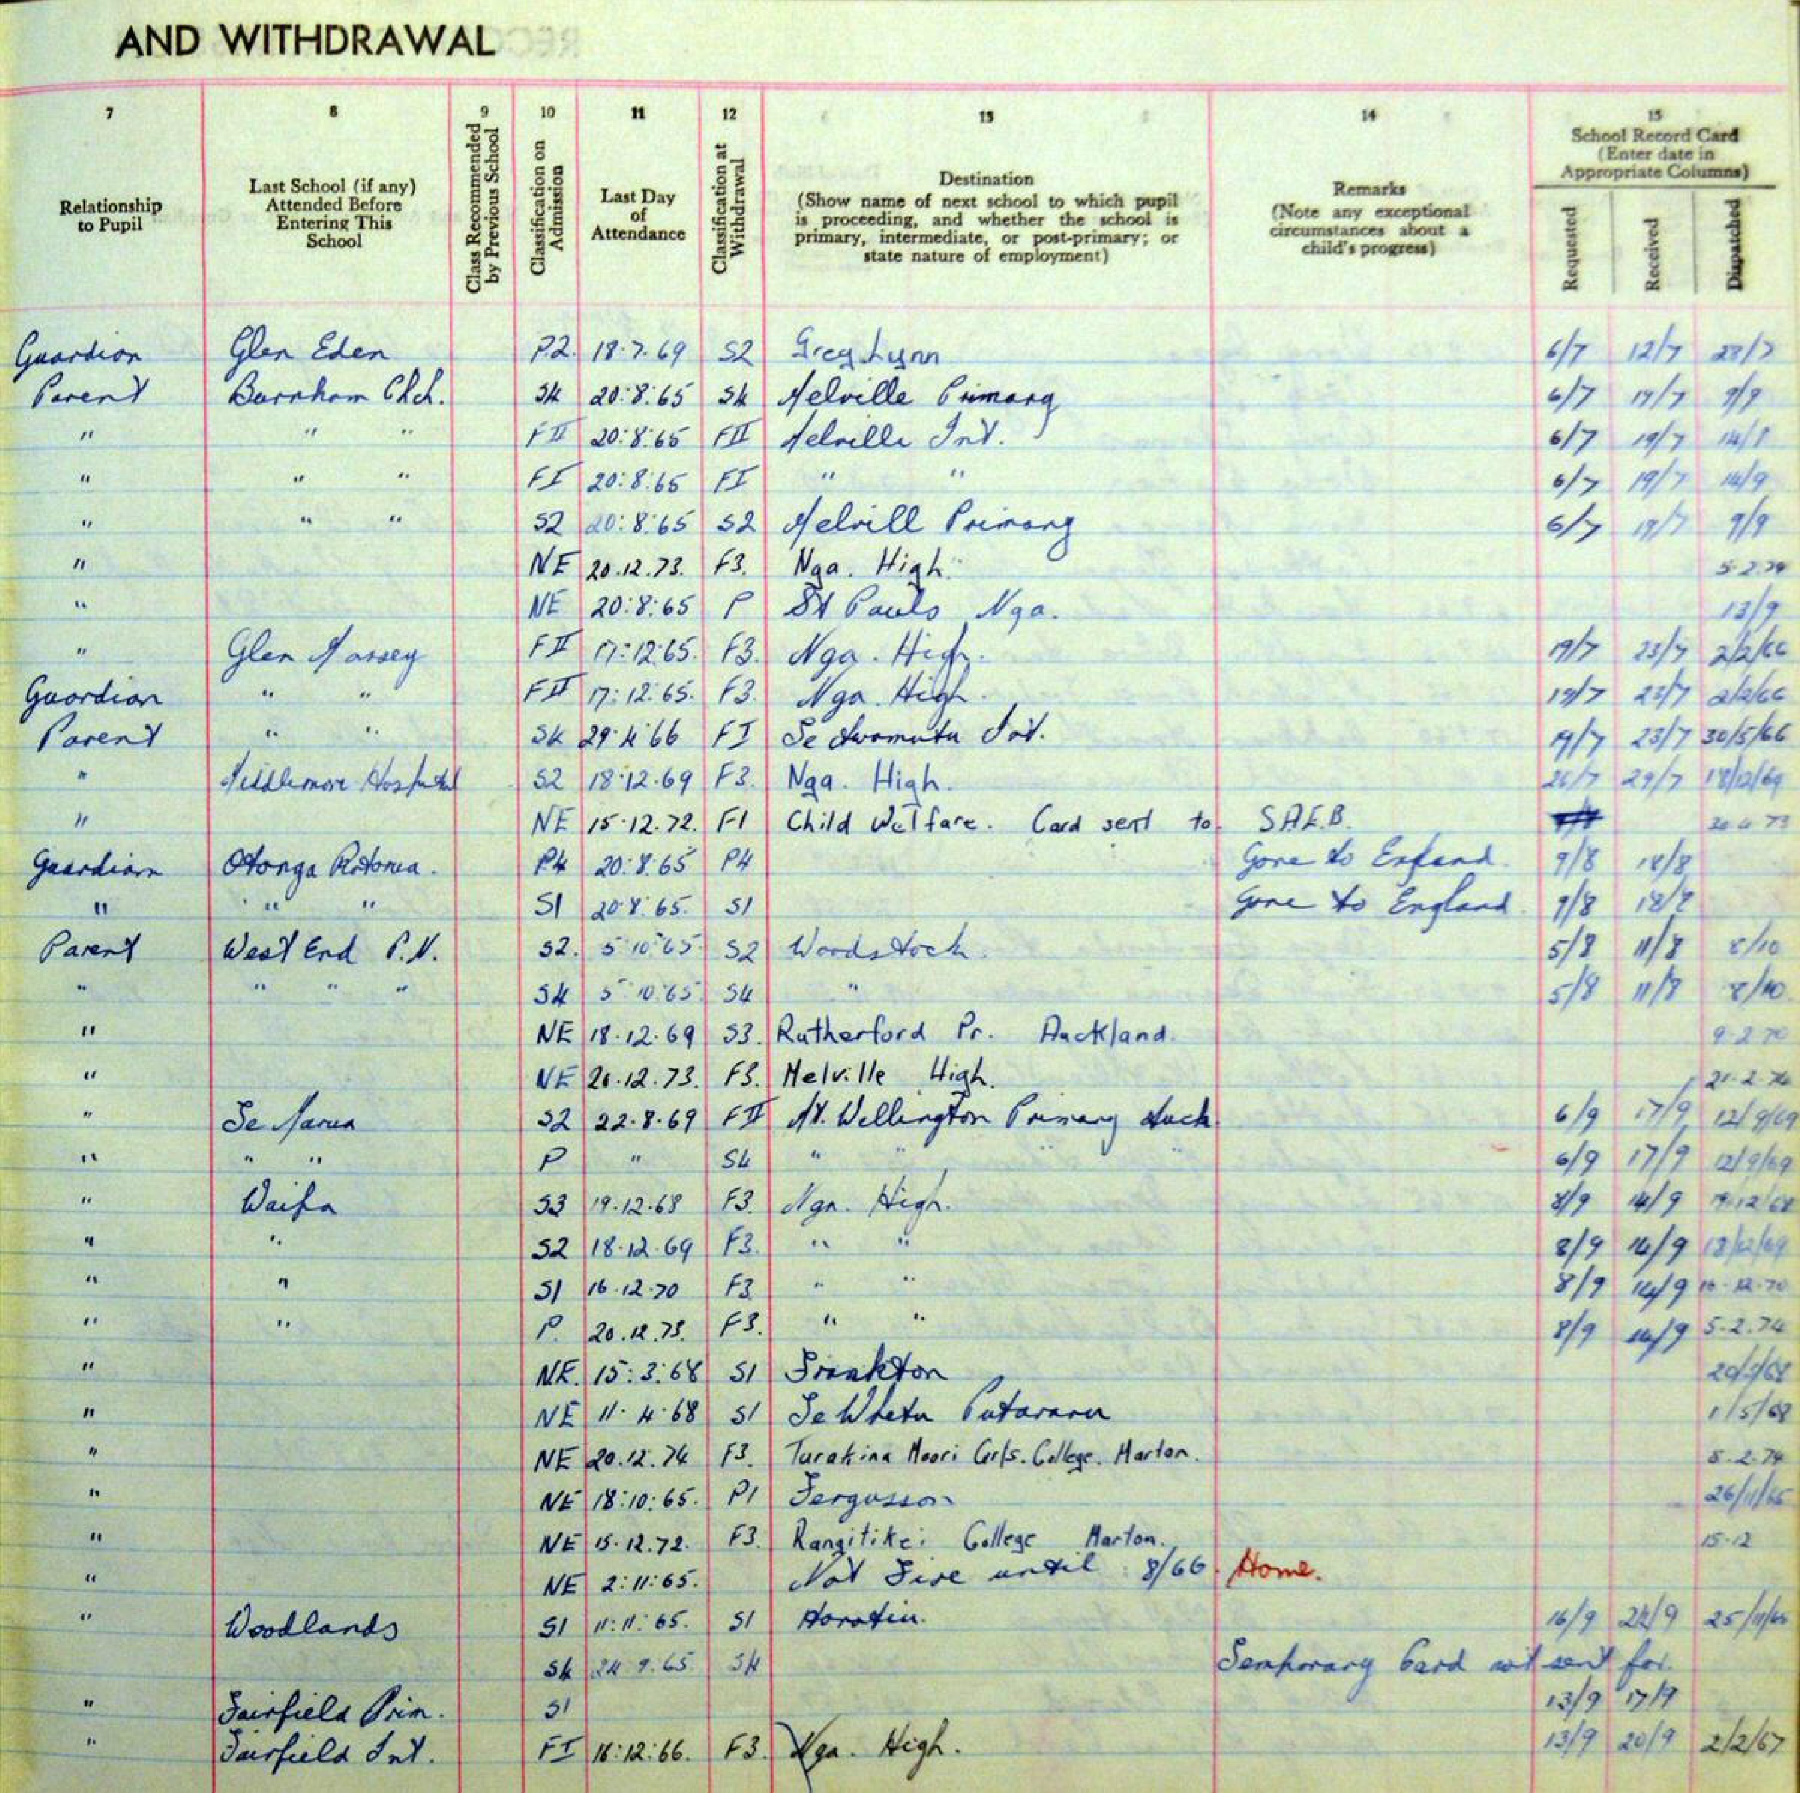 AND WITHDRAWAL
7 8 9 10 11 12 13 14 15
Relationship to Pupil
Last School (if any) Attended Before Entering This School
Class Recommended by Previous School
Classification on Admission
Last Day of Attendance
Classification at Withdrawal
Destination (Show name of next school to which pupil is proceeding, and whether the school is primary, intermediate, or post-primary; or state nature of employment)
Remarks (Note any exceptional circumstances about a child's progress)
School Record Card (Enter date in Appropriate Columns)
Requested Received Dispatched
Guardian Glen Eden P2. 18.7.69 S2 Greg Lynn 6/7 12/7 28/7
Parent Burnham Chch. S4 20:8:65 S4 Melville Primary 6/7 19/7 9/9
" " " FII 20:8:65 FII Melville Int. 6/7 19/7
" " " FI 20:8:65 FI " " 6/7 19/7 14/9
" " " S2 20:8:65 S2 Melvill Primary 6/7 19/7 9/9
" NE 20.12.73. F3. Nga. High. 5.2.74
" NE 20:8:65 P St Pauls Nga. 13/9
" Glen Massey FII 17:12:65. F3. Nga. High. 19/7 23/7 2/2/66
Guardian " " FII 17:12:65. F3. Nga. High. 19/7 23/7 2/2/66
Parent " " S4 29.4.66 FI Te Awamutu Int. 19/7 23/7 30/5/66
" Middlemore Hospital S2 18.12.69 F3. Nga. High. 26/7 29/7 18/12/69
" NE 15.12.72. F1 Child Welfare. Card sent to S.A.E.B.
Guardian Otonga Rotorua. P4 20:8:65 P4 Gone to England 9/8 18/8
" " " S1 20.8.65. S1 Gone to England 9/8 18/8
Parent West End P.N. S2. 5.10.65 S2 Woodstock. 5/8 11/8 8/10
" " " " S4 5.10.65 S4 " 5/8 11/8 8/10
" NE 18.12.69 S3. Rutherford Pr. Auckland. 9.2.70
" NE 20.12.73. F3. Melville High. 21.2.74
" Te Marua S2 22.8.69 FII Mt. Wellington Primary Auck. 6/9 17/9 12/9/69
" " " P " S4 " " " 6/9 17/9 12/9/69
" Waipa S3 19.12.68 F3. Nga. High. 8/9 14/9 19.12.68
" " S2 18.12.69 F3. " " 8/9 14/9 18/12/69
" " S1 16.12.70 F3 " " 8/9 14/9 16.12.70
" " P. 20.12.73. F3. " " 8/9 14/9 5.2.74
" NE. 15:3:68 S1 Frankton 20/3/68
" NE 11.4.68 S1 Te Whetu Putaruru 1/5/68
" NE 20.12.74 F3. Turakina Maori Girls. College. Marton. 5.2.74
" NE 18:10:65. P1 Fergusson 26/11/65
" NE 15.12.72. F3. Rangitikei College Marton. 15.12
" NE 2:11:65. Not Five until 8/66. Home.
" Woodlands S1 11:11:65. S1 Horotiu. 16/9 24/9 25/11/65
S4 24.9.65 S4 Temporary Card not sent for.
" Fairfield Prim. S1 13/9 17/9
" Fairfield Int. FI 16:12:66. F3. Nga. High. 13/9 20/9 2/2/67